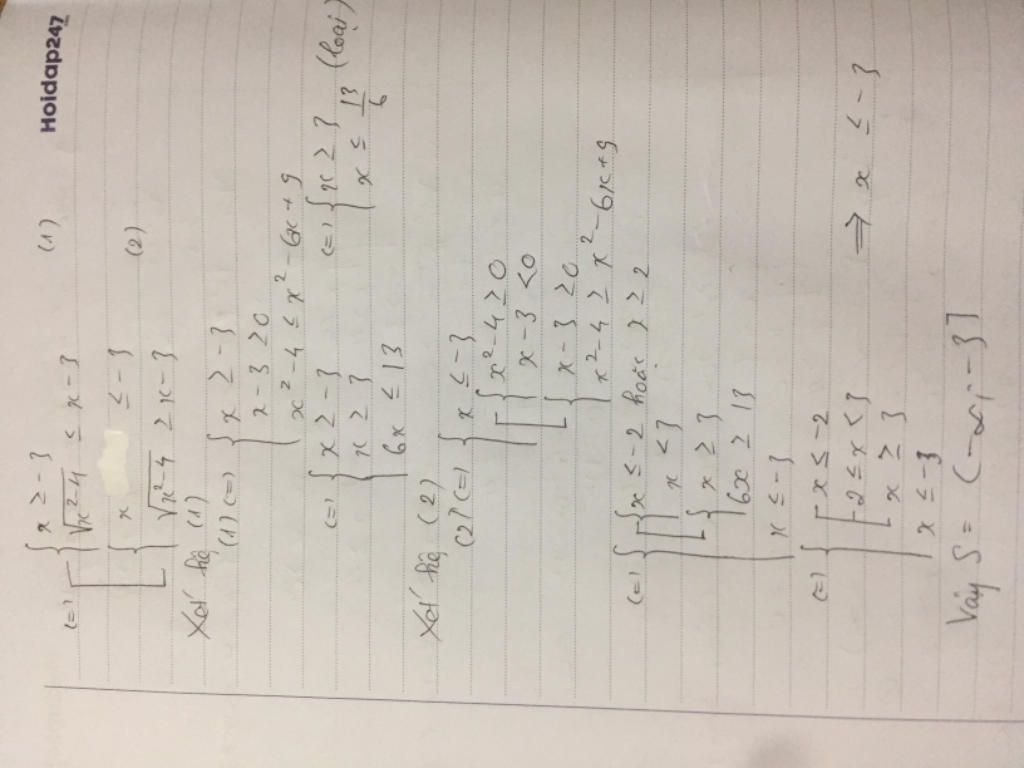 Hoidap247
(=) [ { x ≥ -3
√x²-4 ≤ x-3 (1)
{ x ≤ -3
√x²-4 ≥ x-3 (2)
Xét hệ (1)
(1) (=) { x ≥ -3
x-3 ≥0
x²-4 ≤ x²-6x+9
(=) { x ≥ -3
x ≥ 3
6x ≤ 13
(=) { x ≥ 3
x ≤ 13/6 (loại)
Xét hệ (2)
(2) (=) { x ≤ -3
[ { x²-4 ≥0
x-3 <0
{ x-3 ≥0
x²-4 ≥ x²-6x+9
(=) { [ { x ≤ -2 hoặc x ≥ 2
x < 3
{ x ≥ 3
6x ≥ 13
x ≤ -3
(=) { [ x ≤ -2
2 ≤ x < 3
x ≥ 3
x ≤ -3
=> x ≤ -3
Vậy S = (-∞; -3]